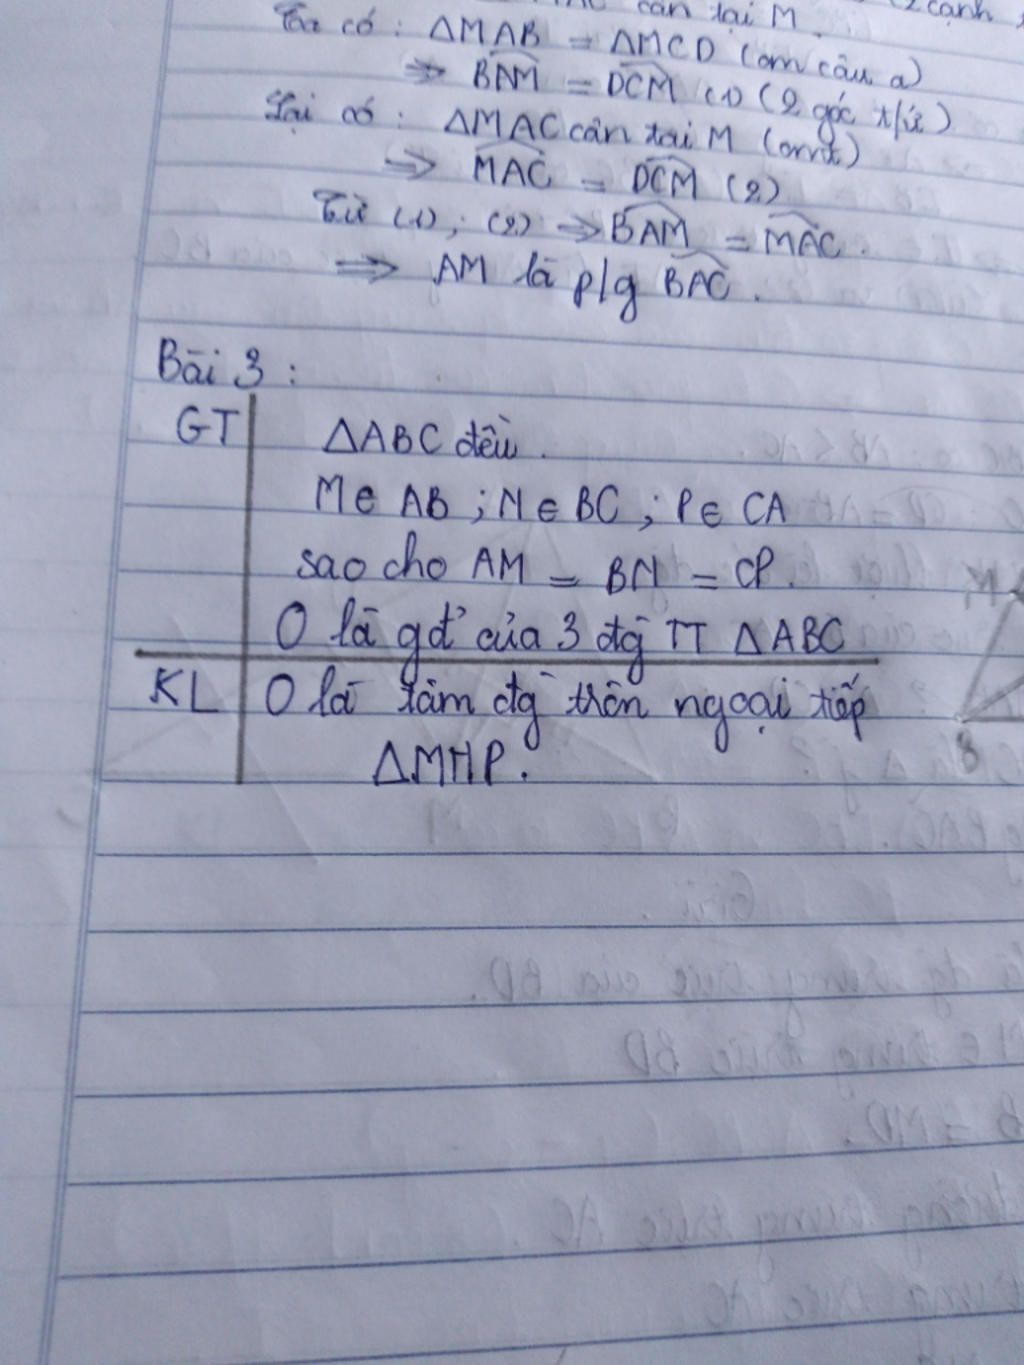 cân tại M.
Ta có: ΔMAB = ΔMCD (cm câu a)
⇒ BAM = DCM (1) (2 góc t/ứ)
Lại có: ΔMAC cân tại M (cmt)
⇒ MAC = DCM (2)
Từ (1); (2) ⇒ BAM = MAC.
⇒ AM là p/g BAC.
Bài 3:
GT ΔABC đều.
M∈ AB; N∈ BC; P∈ CA
sao cho AM = BN = CP.
O là gđ' của 3 đg TT ΔABC
KL O là tâm đg tròn ngoại tiếp
ΔMNP.
B